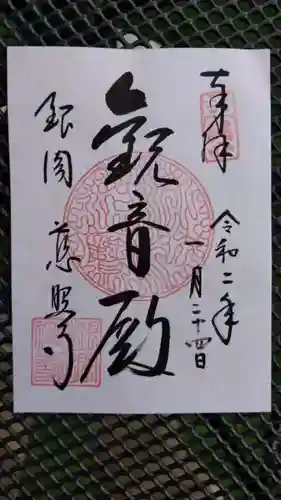 奉拝
令和二年
一月二十四日
観音殿
銀閣
慈照寺